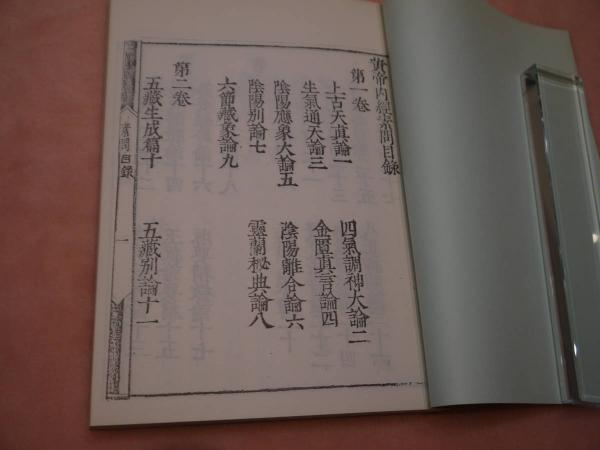 黄帝内經素問目録
第一卷
上古天真論一 四氣調神大論二
生氣通天論三 金匱真言論四
陰陽應象大論五 陰陽離合論六
陰陽別論七 靈蘭秘典論八
六節藏象論九
第二卷
五藏生成篇十 五藏別論十一
素問目録
一